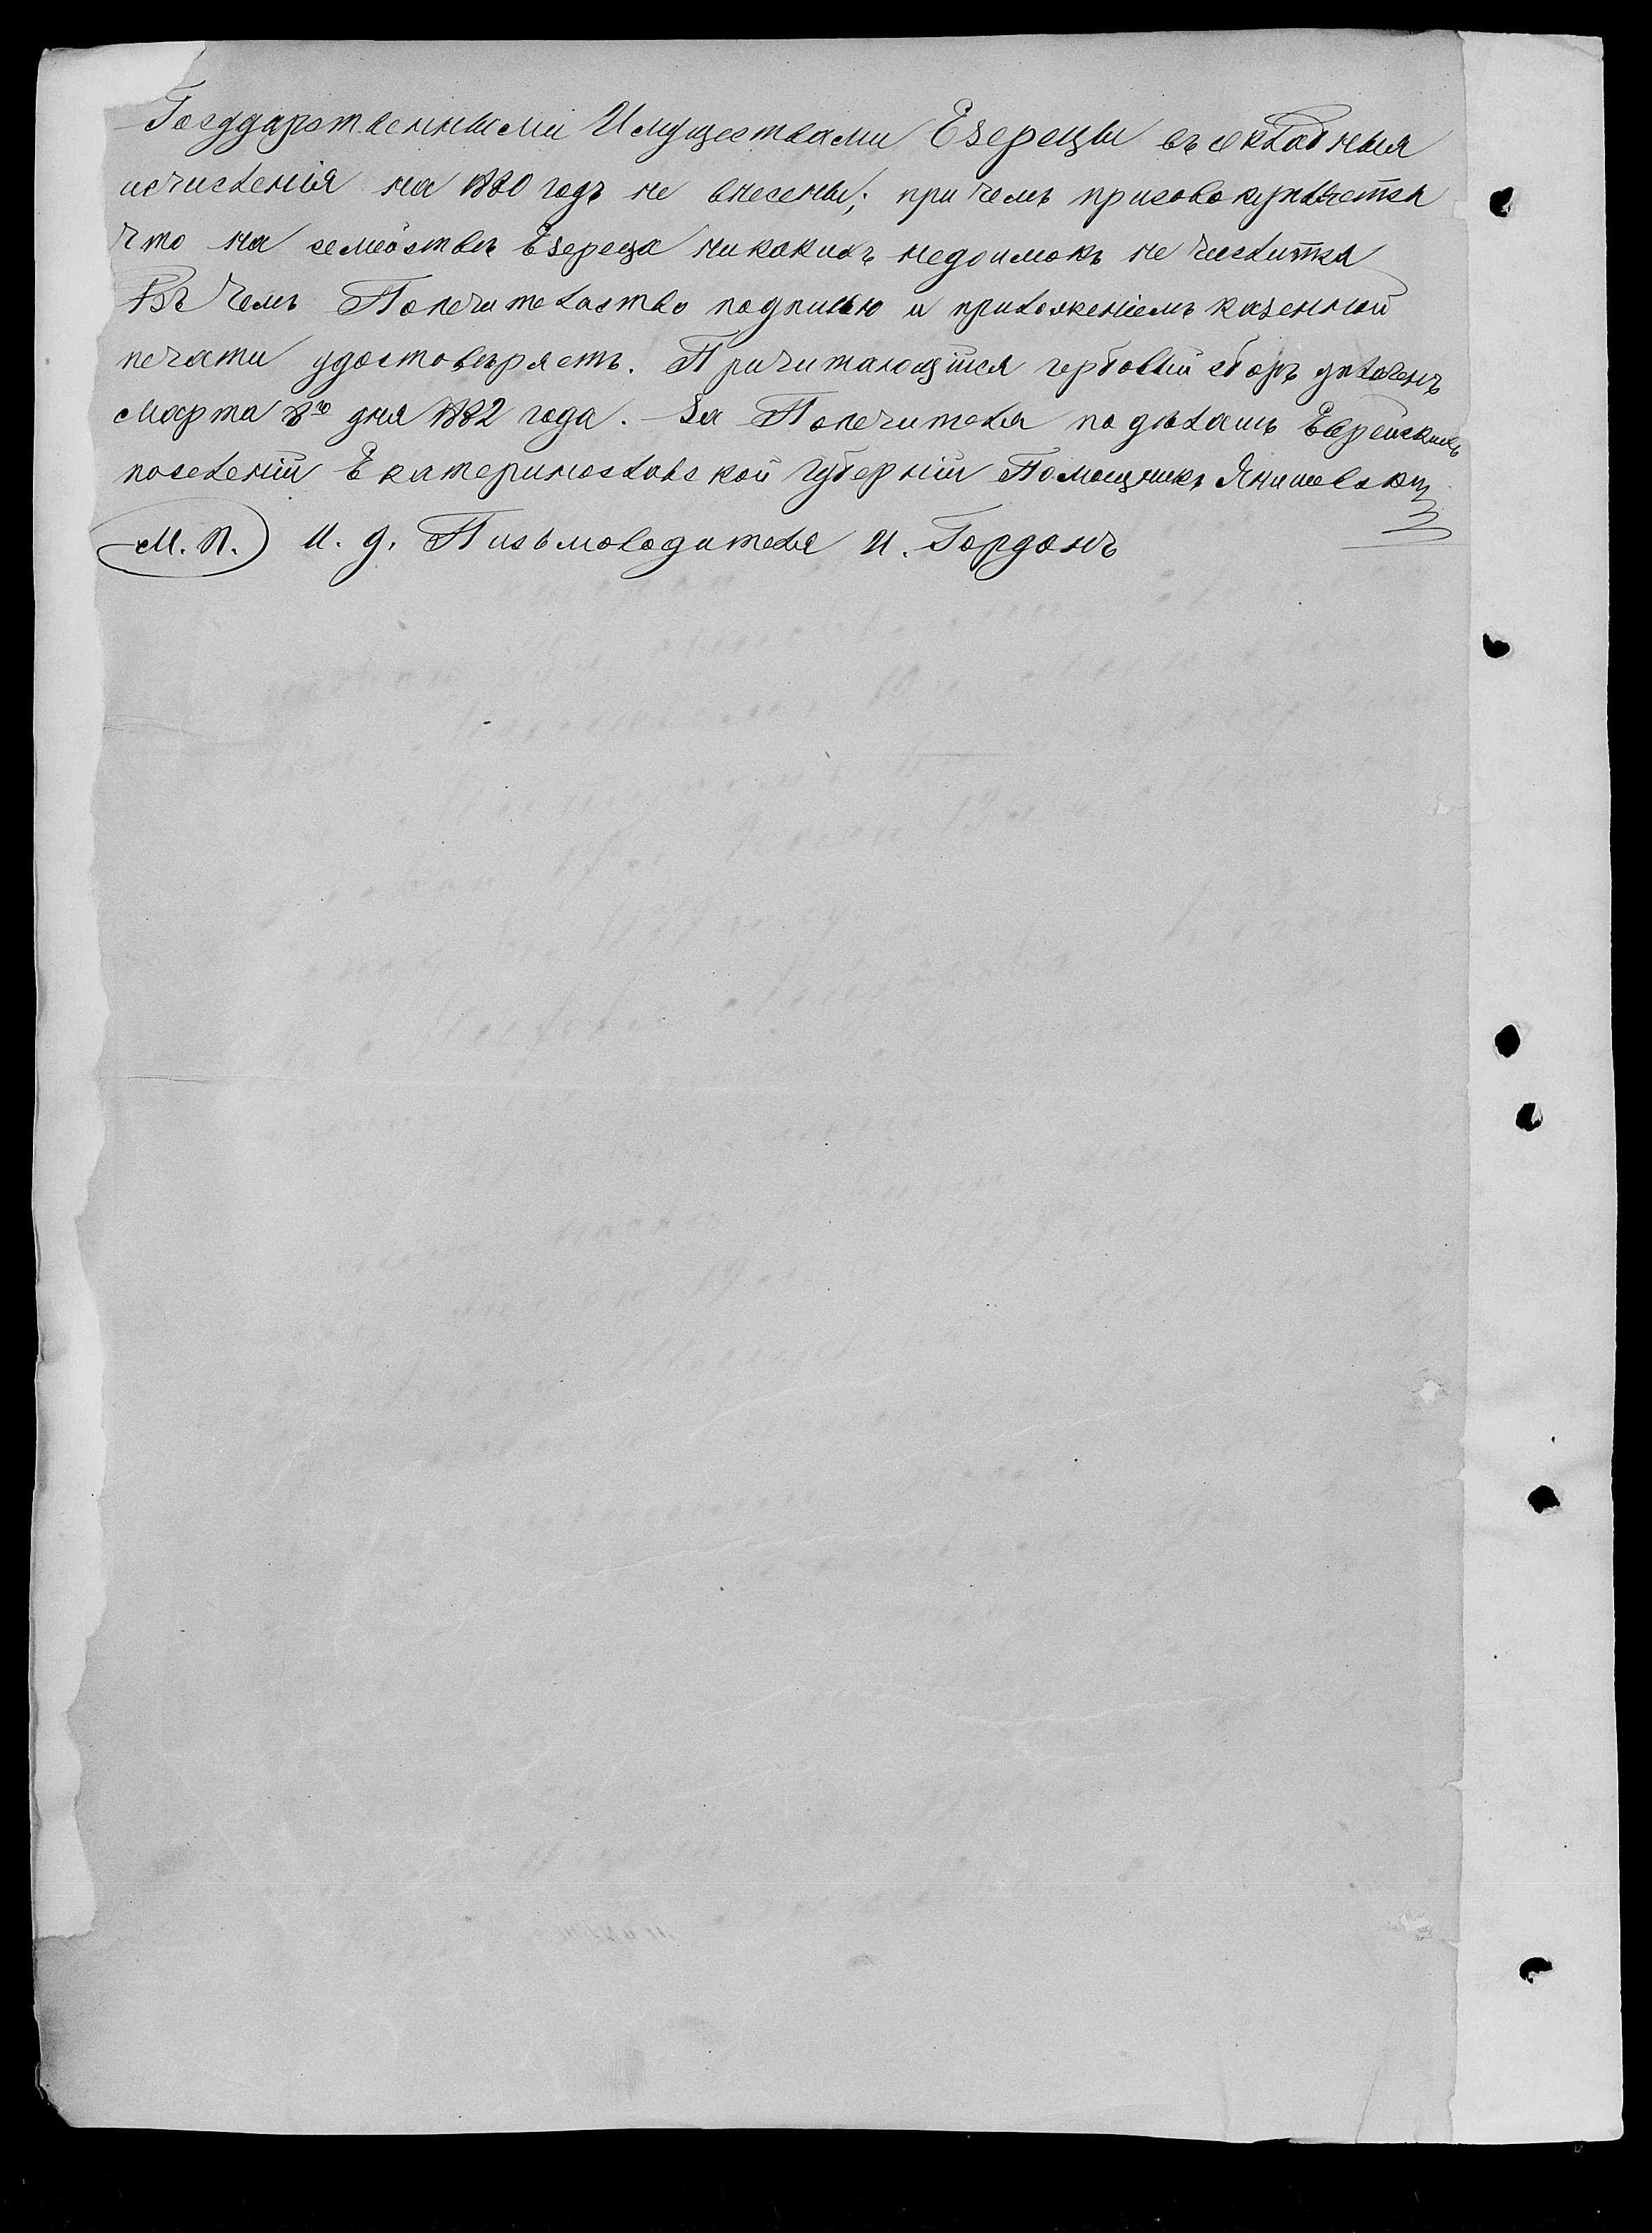 Государственными Имуществами Езерецы въ окладныя
исчисленія на 1880 годъ не внесены; при чемъ присовокупляется
что на семействѣ Езереца никакихъ недоимокъ не числится
Въ чемъ Попечительство подписью и приложеніемъ казенной
печати удостовѣряетъ. Причитающійся гербовый сборъ уплаченъ
Марта 8го дня 1882 года. За Попечителя по дѣламъ Еврейскихъ
поселеній Екатеринославской Губерніи Помощникъ Янишевскій
М. П. И. д. Письмоводителя И. Гордонъ